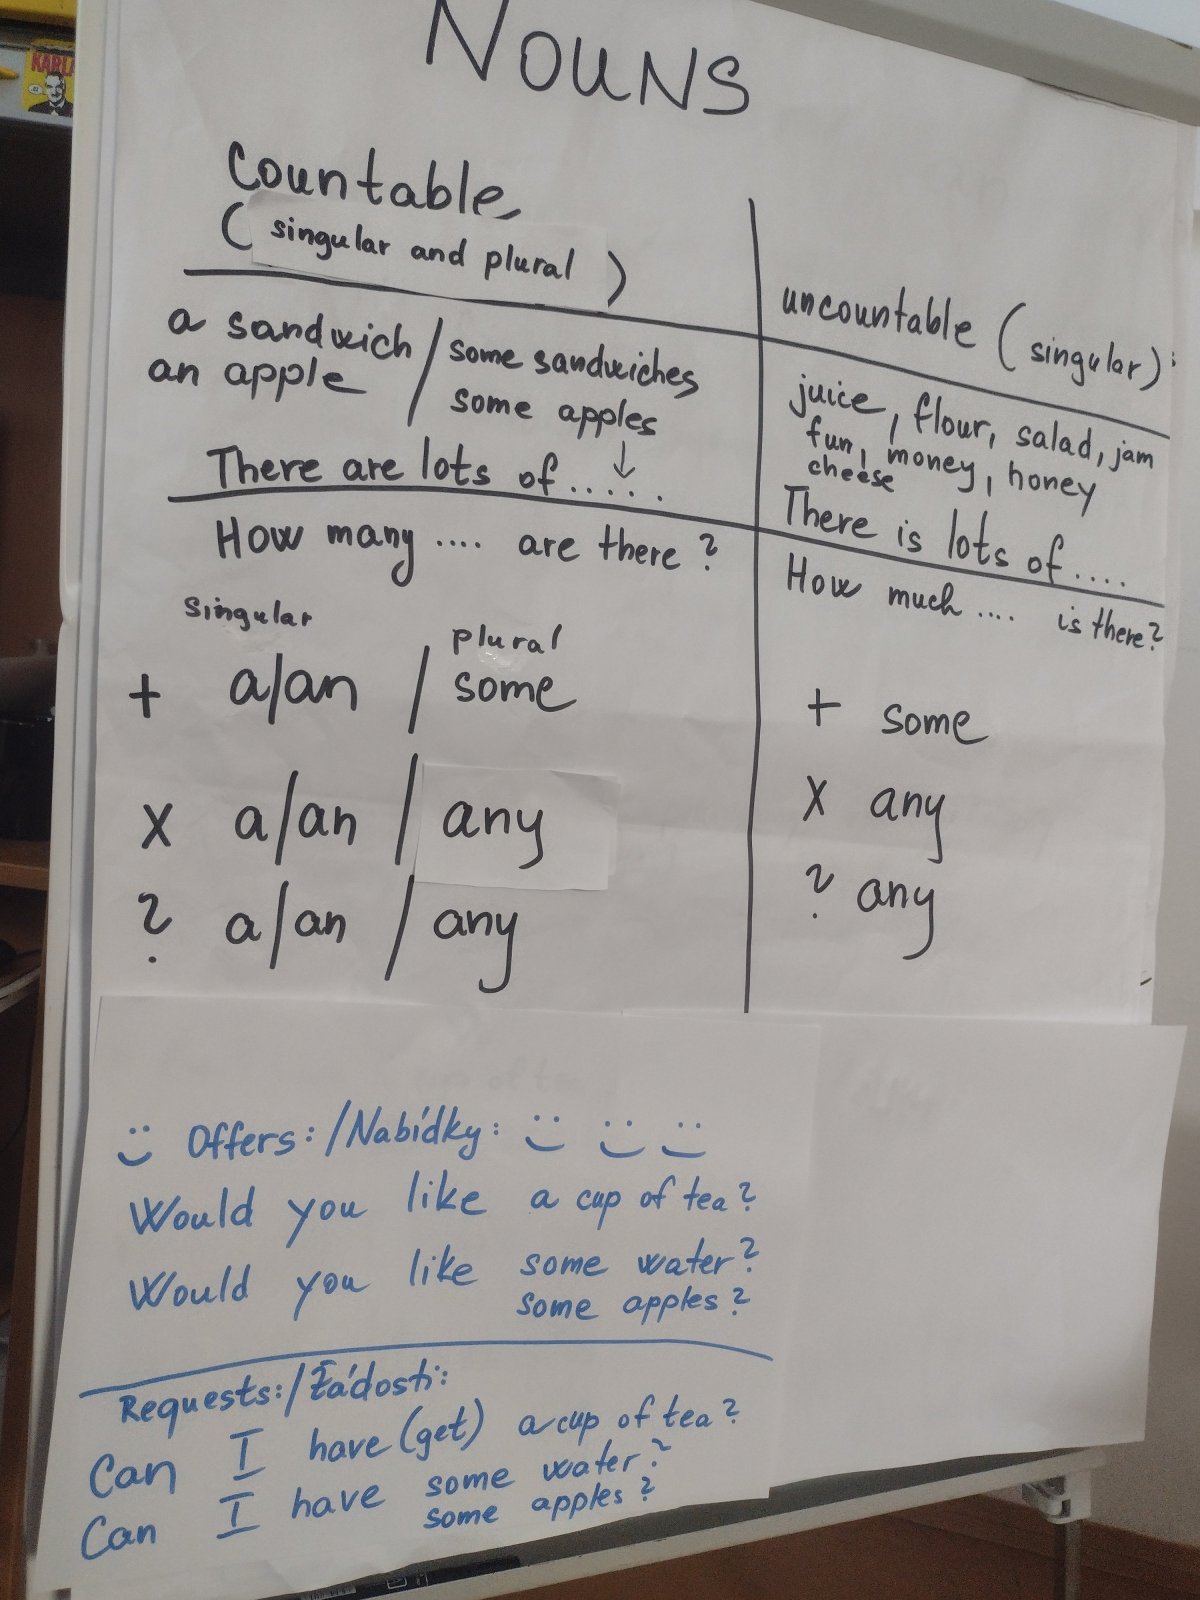 KARL
NOUNS
Countable
(singular and plural)
a sandwich / some sandwiches
an apple / some apples
There are lots of ..... ↓
How many .... are there?
uncountable (singular):
juice, flour, salad, jam
fun, money, honey
cheese
There is lots of ....
How much .... is there?
singular plural
+ a/an / some
x a/an / any
? a/an / any
+ some
x any
? any
Offers: / Nabídky:
Would you like a cup of tea?
Would you like some water?
some apples?
Requests: / Žádosti:
Can I have (get) a cup of tea?
Can I have some water?
some apples?